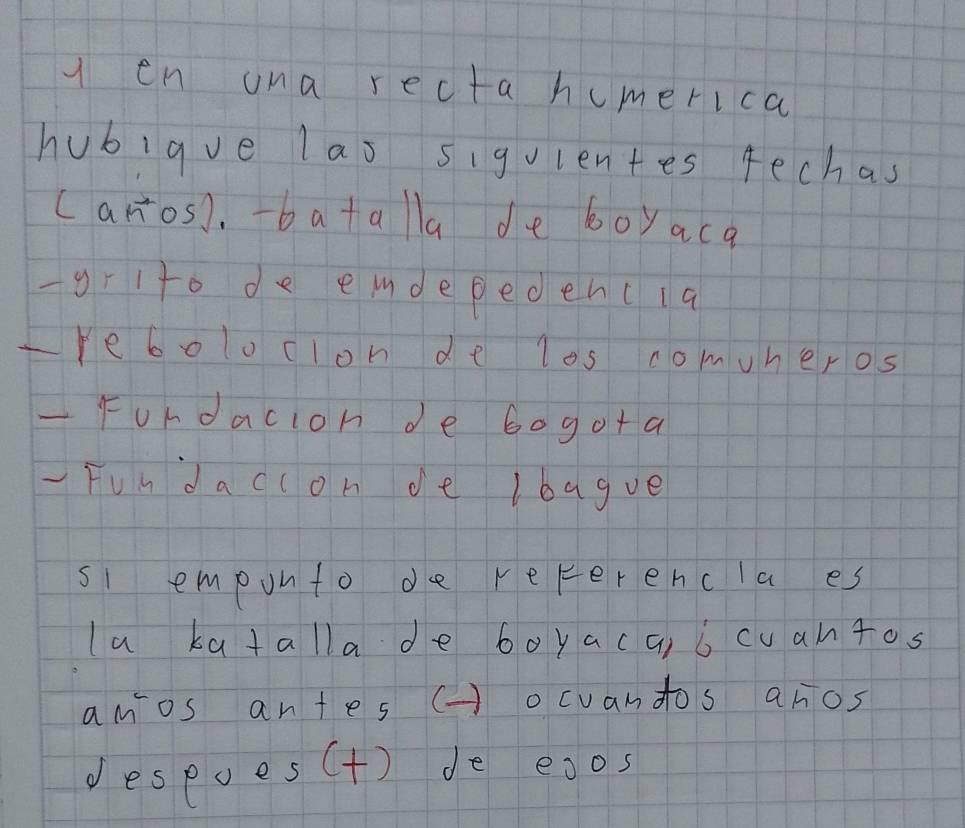 1 en una recta humerica
hubique las siguientes fechas
(años). -batalla de boyaca
-grito de emdepedencia
-rebolocion de los comuneros
- Fundacion de bogota
- Fundacion de Ibague
si empunto de referencia es
la batalla de boyaca, ¿cuantos
años antes (-) o cuantos años
despues (+) de esos